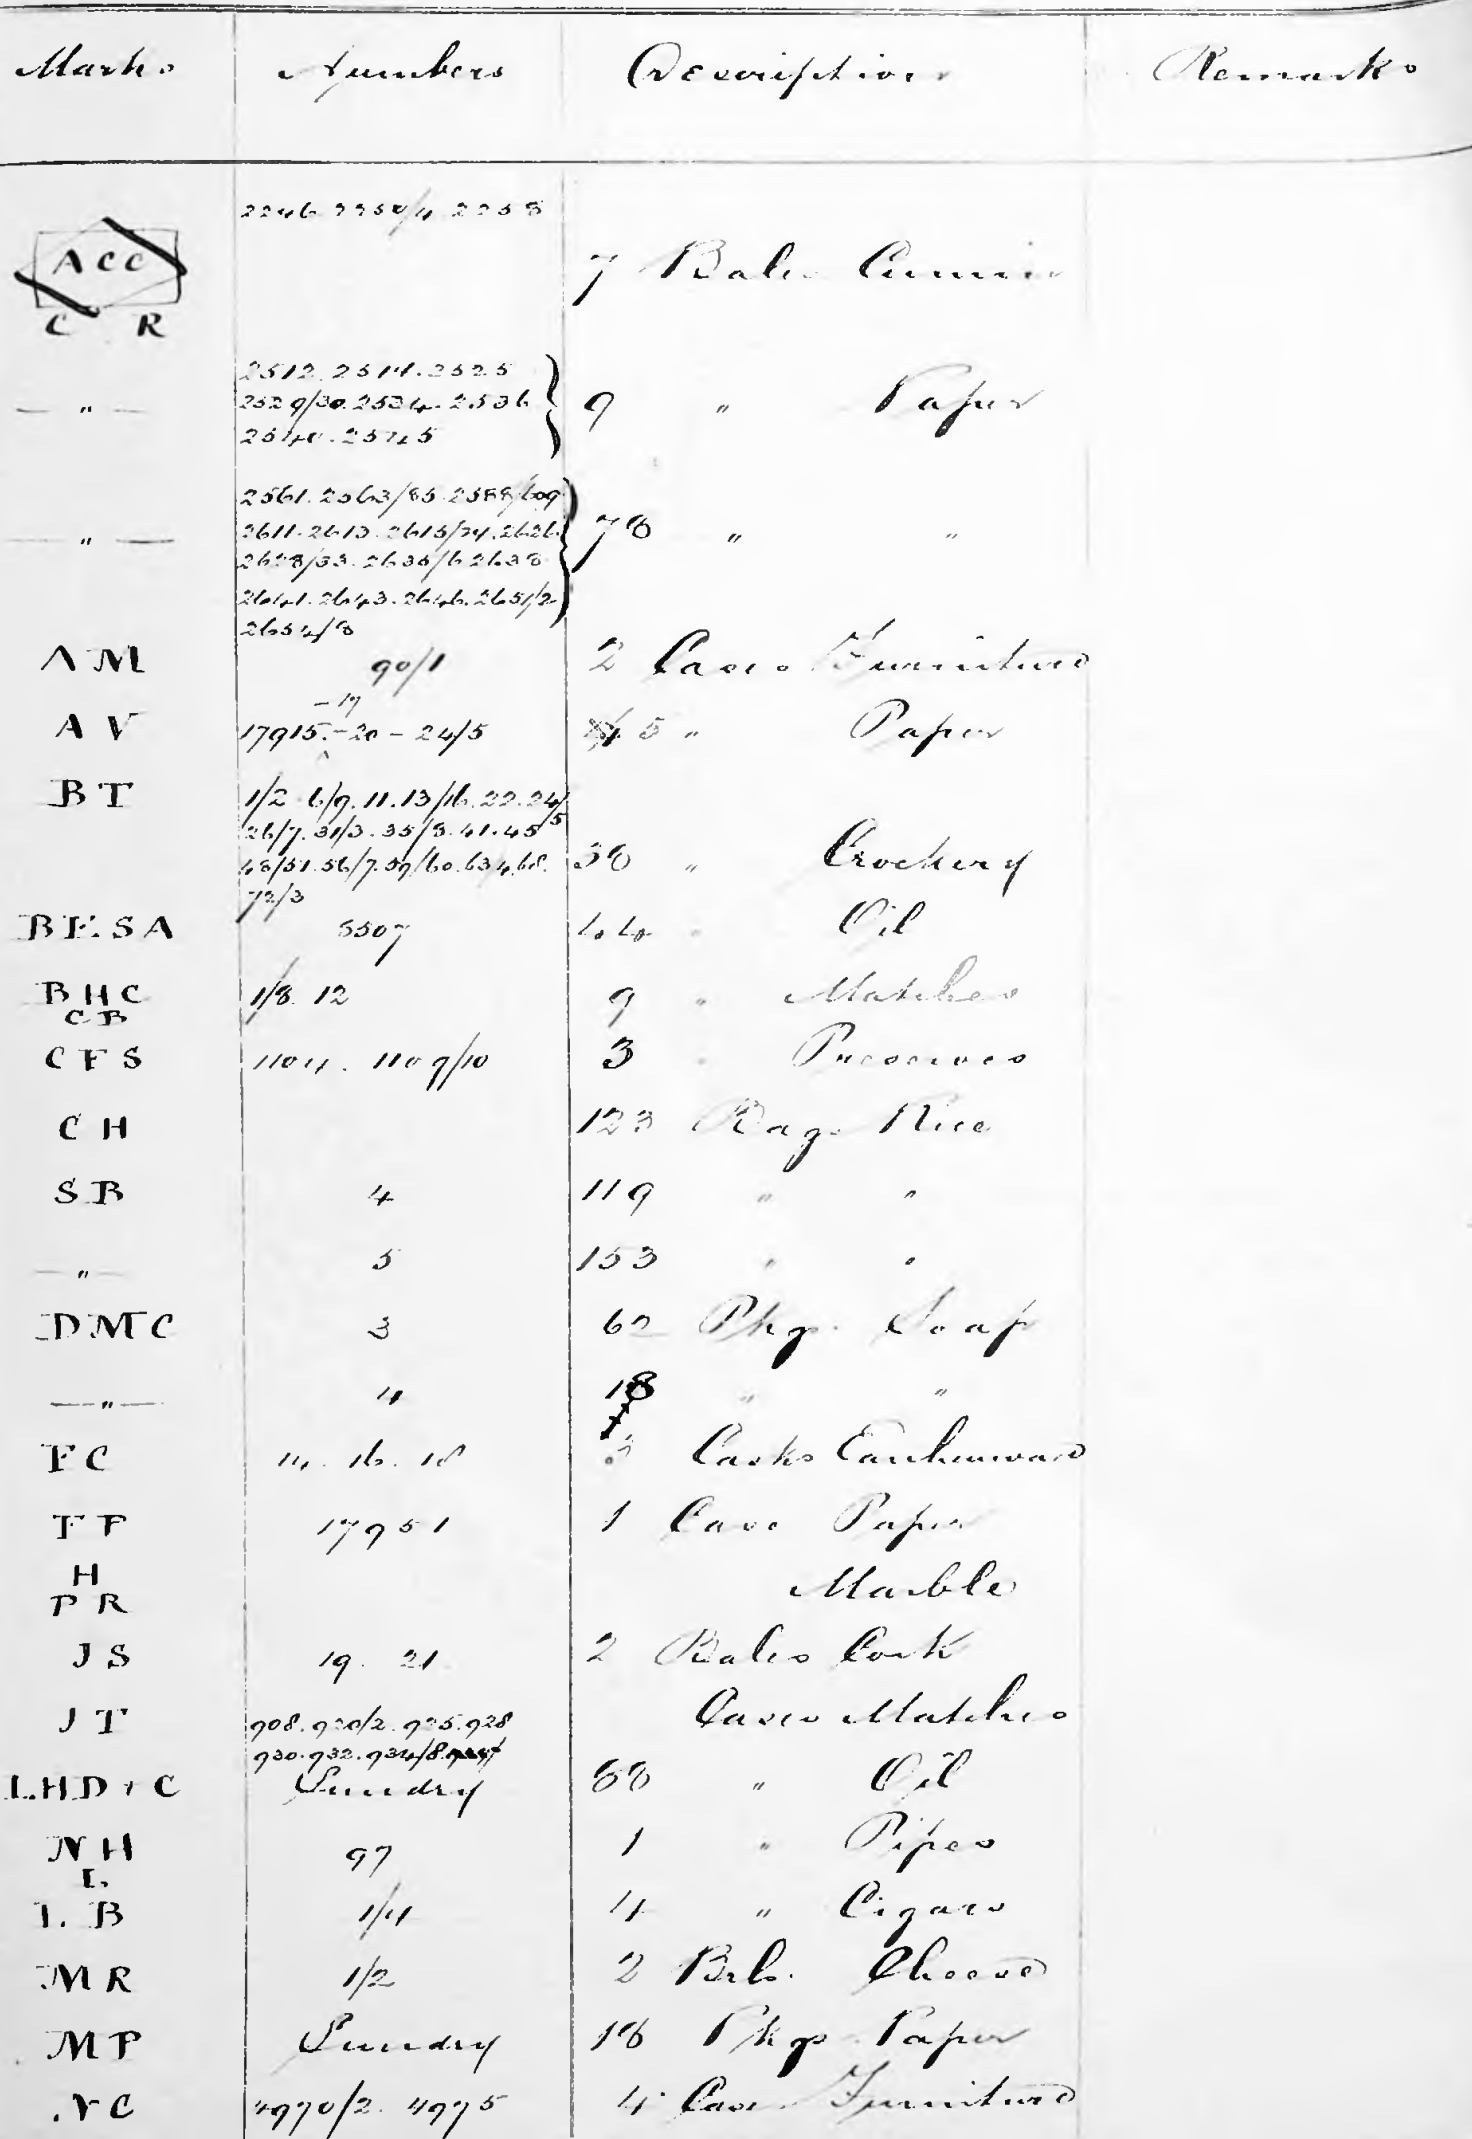 Marks Numbers Description Remarks
2246. 2250/4. 2258
ACC 7 Bales Cumin
C R
2512. 2514. 2525
— " — 2529/30. 2534. 2536 9 " Paper
2540. 2545
2561. 2563/85. 2588/609
— " — 2611. 2613. 2615/24. 2626 78 " "
2628/33. 2635/6 2638
2641. 2643. 2646. 2651/2
2654/8
AM 90/1 2 Cases Furniture
- 19
AV 17915. - 20 - 24/5 5 " Paper
BT 1/2 6/9. 11. 13/16. 22. 24/5
26/7. 31/3. 35/8. 41. 45
48/51. 56/7. 59/60. 63/4. 68. 38 " Crockery
72/3
BESA 5507 44 " Oil
BHC 1/8. 12 9 " Matches
CB
CFS 1104. 1109/10 3 " Preserves
CH 123 Bags Rice
SB 4 119 " "
— " — 5 153 " "
DMC 3 62 Pkgs. Soap
— " — 4 18 " "
FC 14. 16. 18 3 Casks Earthenware
FP 17951 1 Case Paper
H
PR Marble
JS 19. 21 2 Bales Cork
JT 908. 920/2. 925. 928 Cases Matches
930. 932. 934/8.
LHD & C Sundry 58 " Oil
NH 97 1 " Pipes
L
L. B 1/4 4 " Cigars
MR 1/2 2 Brls. Cheese
MP Sundry 18 Pkgs Paper
NC 4970/2. 4975 4 Cases Furniture